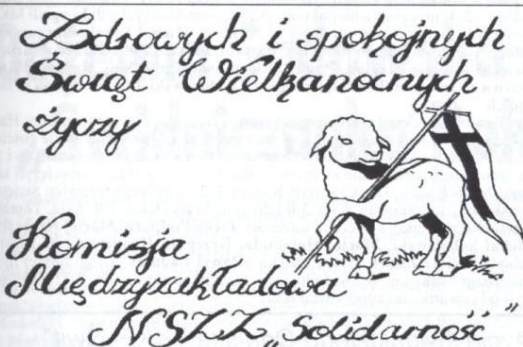 Zdrowych i spokojnych
Świąt Wielkanocnych
życzy
Komisja
Międzyzakładowa
NSZZ „Solidarność"